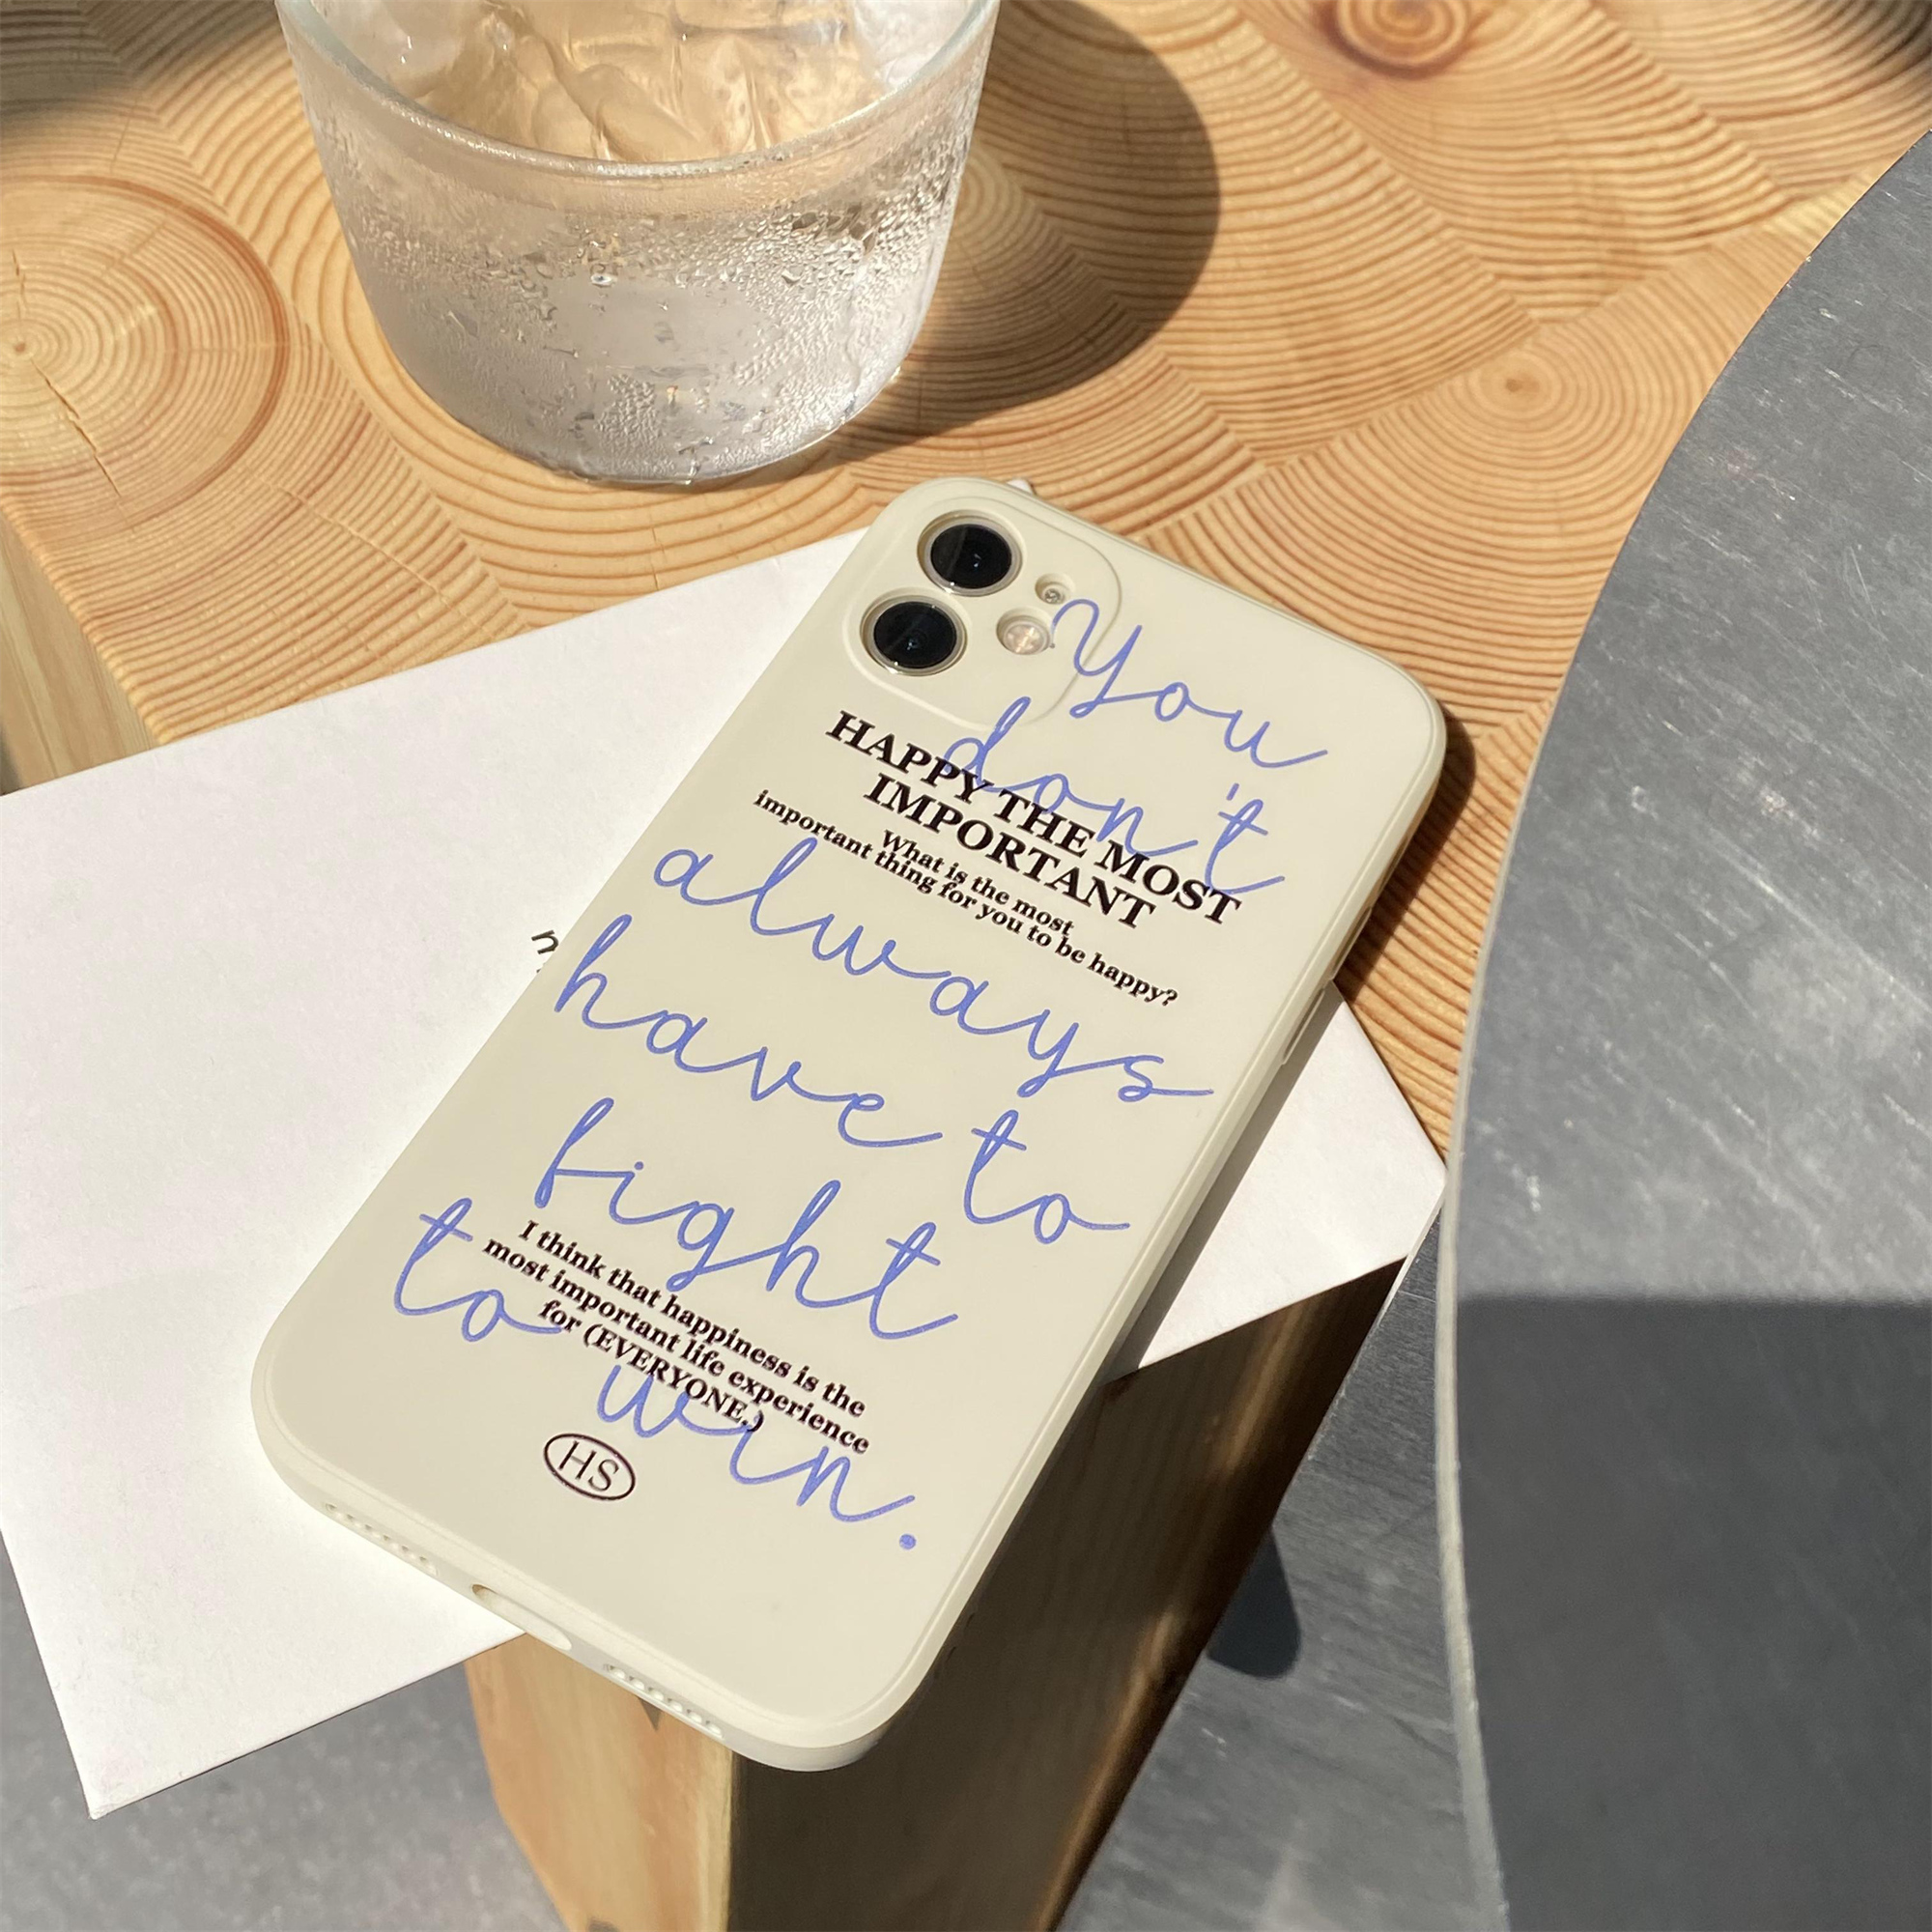 You
don't
HAPPY THE MOST
IMPORTANT
What is the most
important thing for you to be happy?
always
have to
fight
to
I think that happiness is the
most important life experience
for (EVERYONE.)
win.
HS